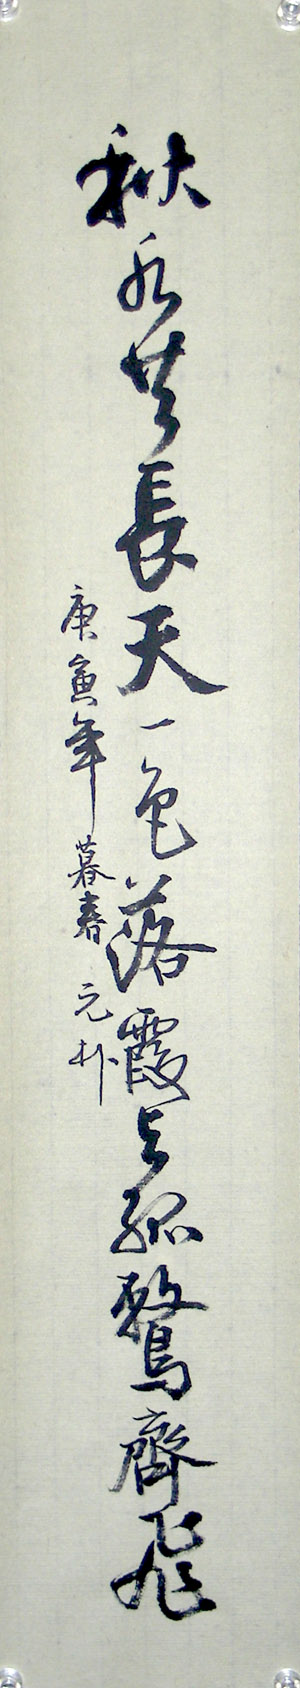 秋水共長天一色落霞与孤鶩齊飛
庚寅年暮春 元朴